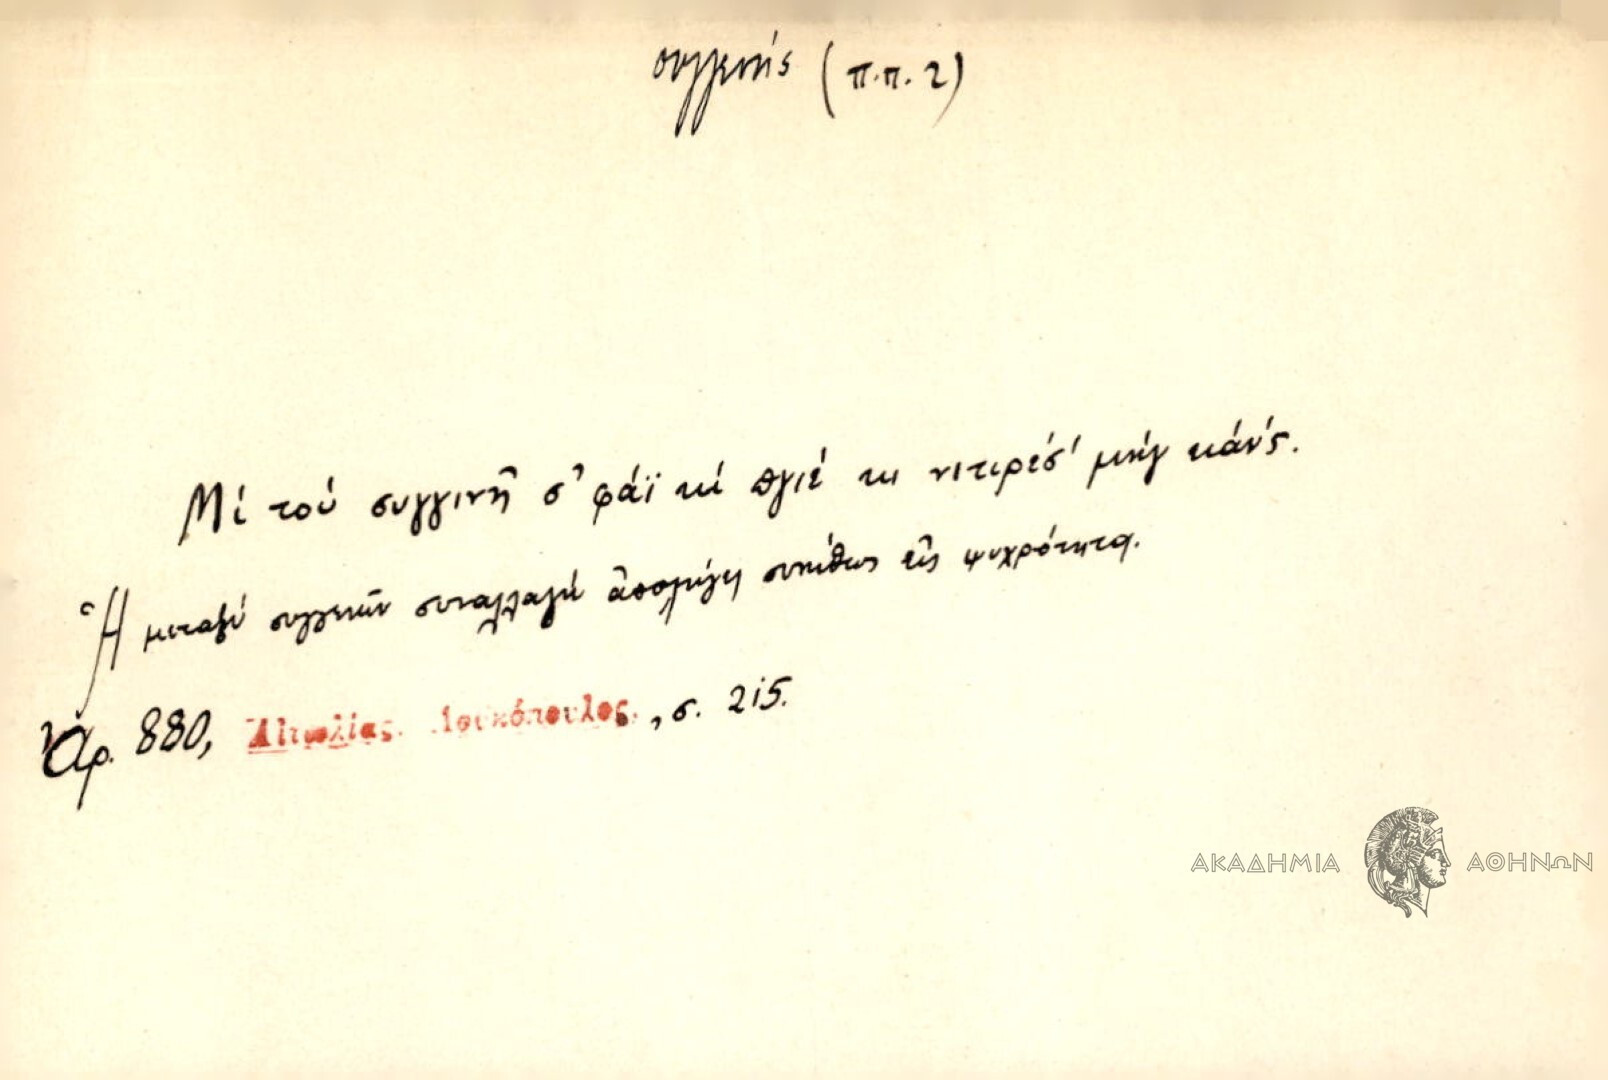 συγγενής (π.π. 2)
Μί τοὺ συγγινῆ σ' φάϊ κὶ πγιέ κι νιτιρέσ' μὴγ κάν'ς.
Ἡ μεταξὺ συγγενῶν συναλλαγὴ ἀπολήγει συνήθως εἰς ψυχρότητα.
Ἀρ. 880, Αἰτωλίας. Λουκόπουλος, σ. 215.
ΑΚΑΔΗΜΙΑ ΑΘΗΝΩΝ